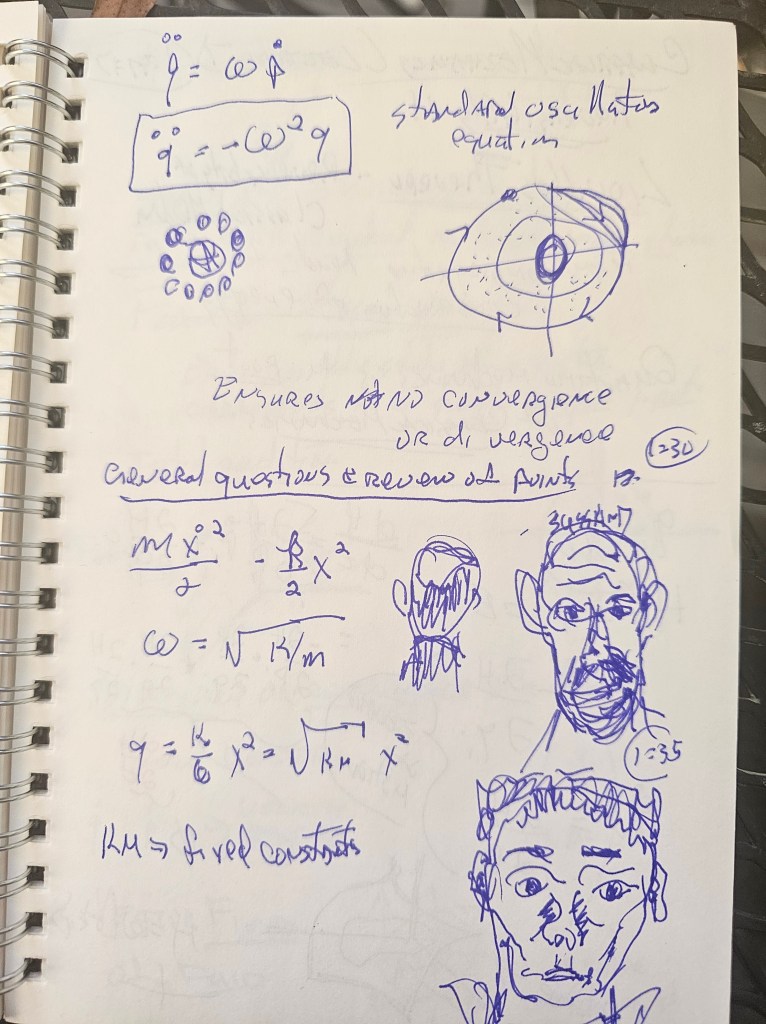 q̈ = ω ṗ
q̈ = -ω² q
standard oscillators
equation
Ensures no convergiance
or divergence
1:30
General questions & review of points
mẋ²/2 - k/2 x²
ω = √K/m
q = K/6 x² = √Km x²
1:35
KM => fixed constants